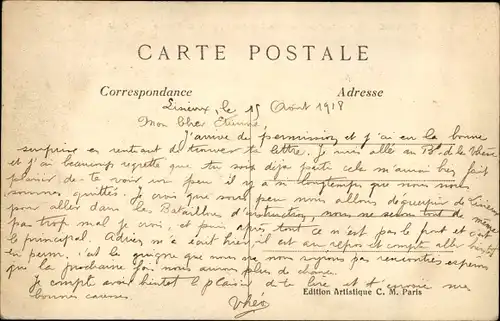 CARTE POSTALE
Correspondance
Adresse
Lisieux, le 15 Août 1918
Mon Cher Etienne,
J'arrive de permission et j'ai eu la bonne
surprise en rentrant de trouver ta lettre. Je suis allé au Bd de la
et j'ai beaucoup regretté que tu sois déjà parti cela m'aurait bien fait
plaisir de te voir un peu il y a longtemps que nous nous
sommes quittés. Je crois que sous peu nous allons déguerpir de Lisieux
pour aller dans les Bataillons d'instruction, nous ne serons tout de même
pas trop mal je crois, et puis après tout ce n'est pas le front et c'est
le principal. Adrien m'a écrit hier, il est au repos et compte aller bientôt
en perm. c'est le guigne que nous ne nous soyons pas rencontrés espérons
que la prochaine fois nous aurons plus de chance.
Je compte avoir bientôt le plaisir de te lire et t'envoie mes
bonnes caresses.
Théo
Edition Artistique C. M. Paris